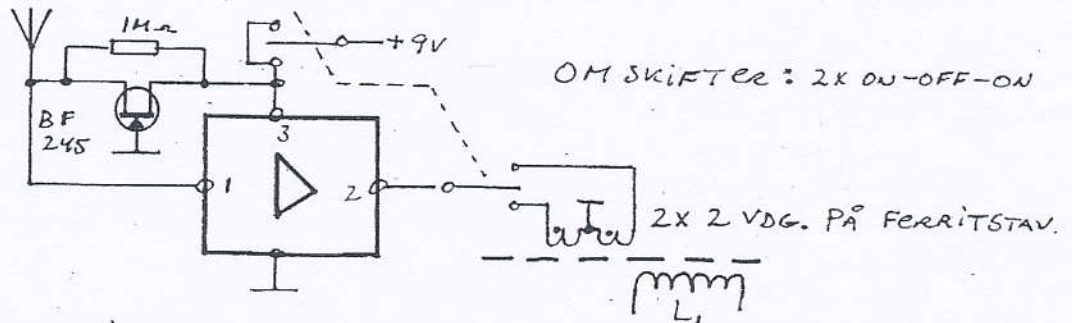 1MΩ
+9V
OMSKIFTER: 2X ON-OFF-ON
BF
245
3
1
2
2X 2 VDG. PÅ FERRITSTAV.
L1